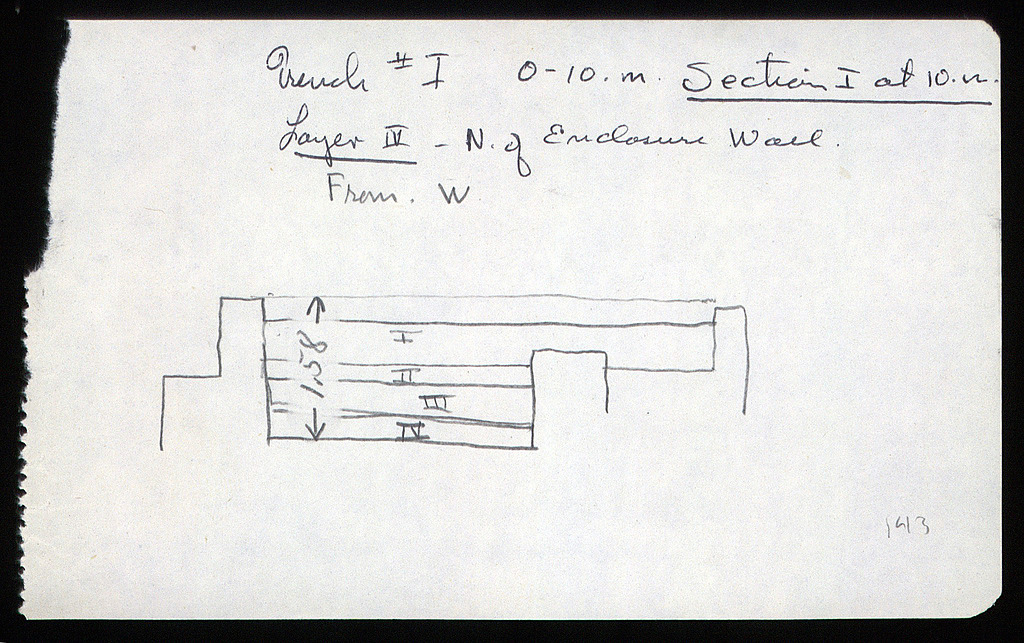 Trench # I 0-10.m. Section I at 10.m.
Layer IV - N. of Enclosure Wall.
From. W
I
II
1.58
III
IV